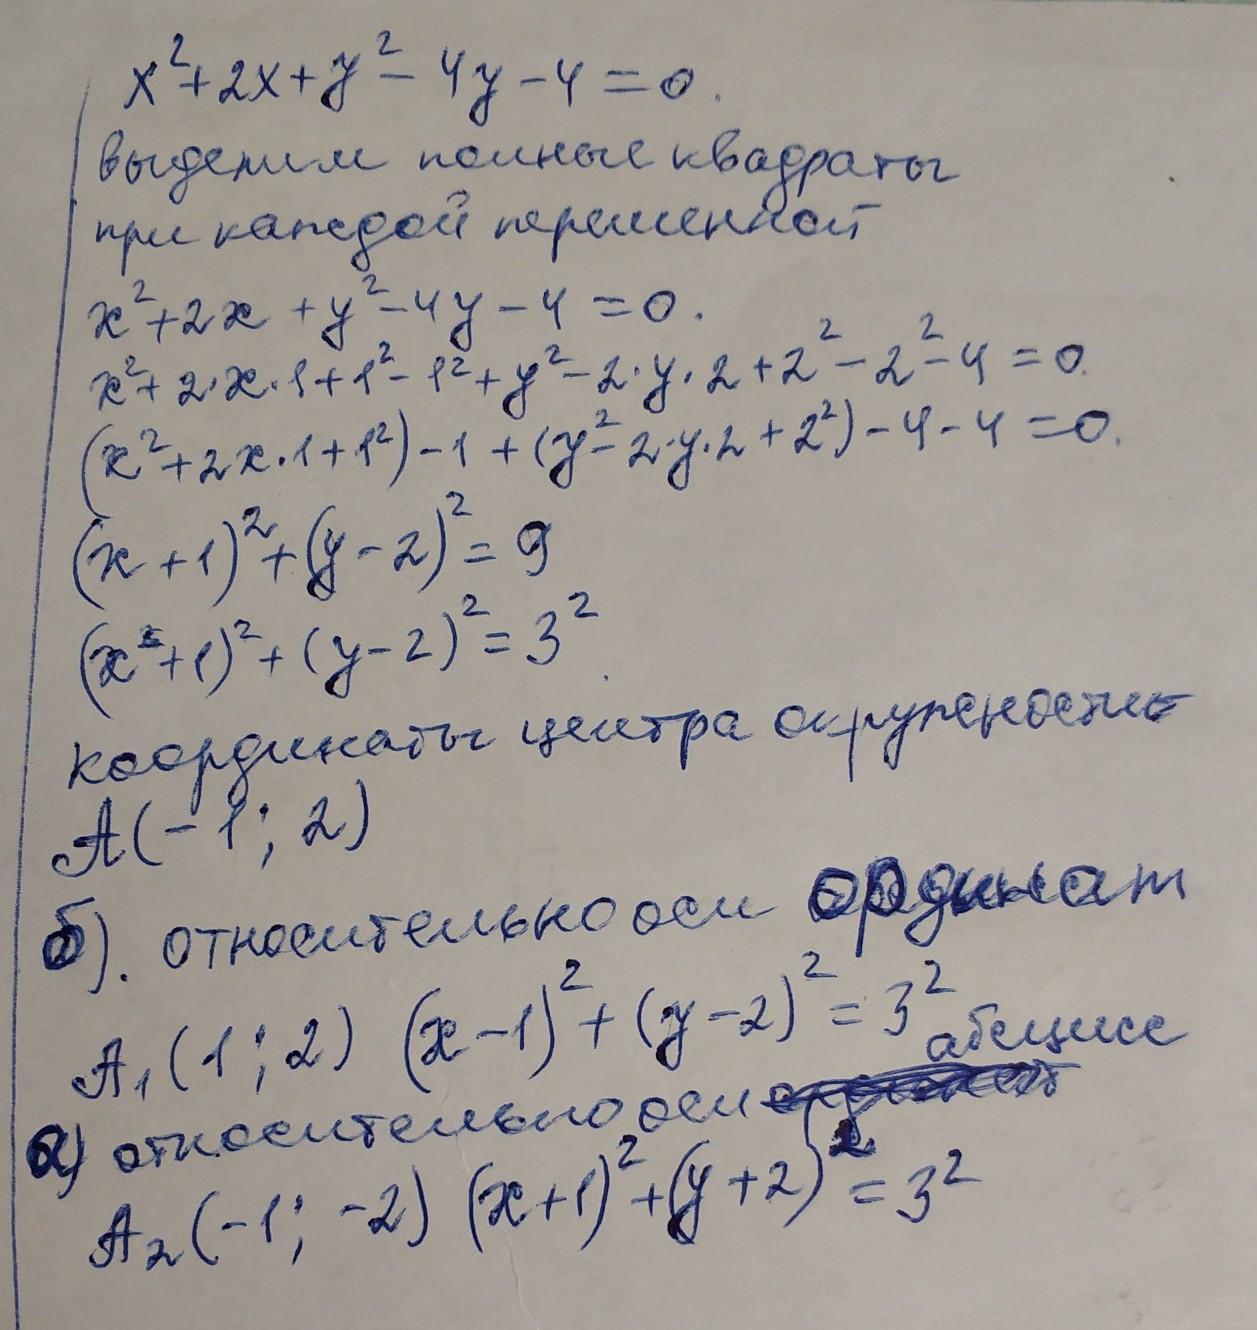 x²+2x+y²-4y-4=0.
выделим полные квадраты
при каждой переменной
x²+2x+y²-4y-4=0.
x²+2·x·1+1²-1²+y²-2·y·2+2²-2²-4=0.
(x²+2x·1+1²)-1+(y²-2·y·2+2²)-4-4=0.
(x+1)²+(y-2)²=9
(x²+1)²+(y-2)²=3²
координаты центра окружности
A(-1; 2)
б). относительно оси ординат
A₁(1; 2) (x-1)²+(y-2)²=3²
а) относительно оси абсцисс
A₂(-1; -2) (x+1)²+(y+2)²=3²